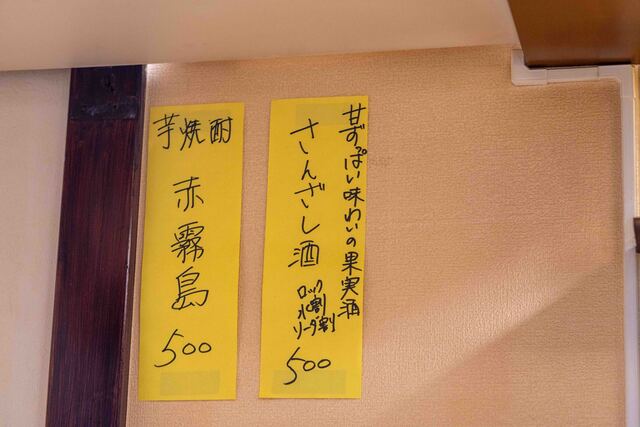 甘ずっぱい味わいの果実酒
さんざし酒
ロック
水割
ソーダ割
500
芋焼酎
赤霧島
500